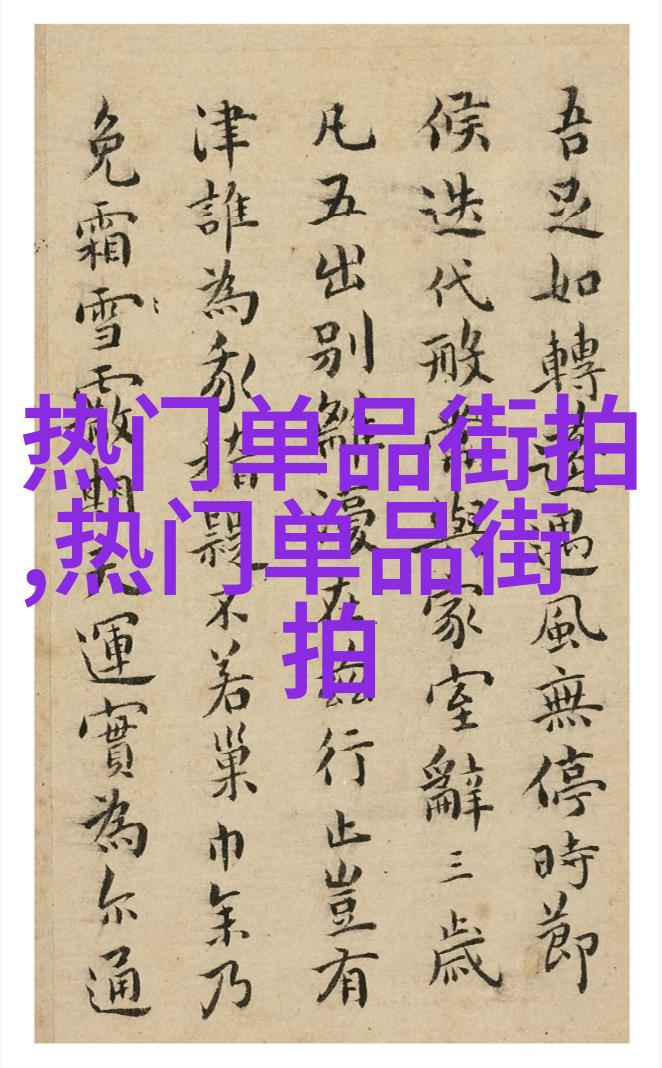 吾足如轉遇風無停時節
候迭代般與家室辭三歲
凡五出別離在茲行止豈有
津誰為不若巢巾乃
免霜雪霰運實為尔通
热门单品街拍
,热门单品街
拍